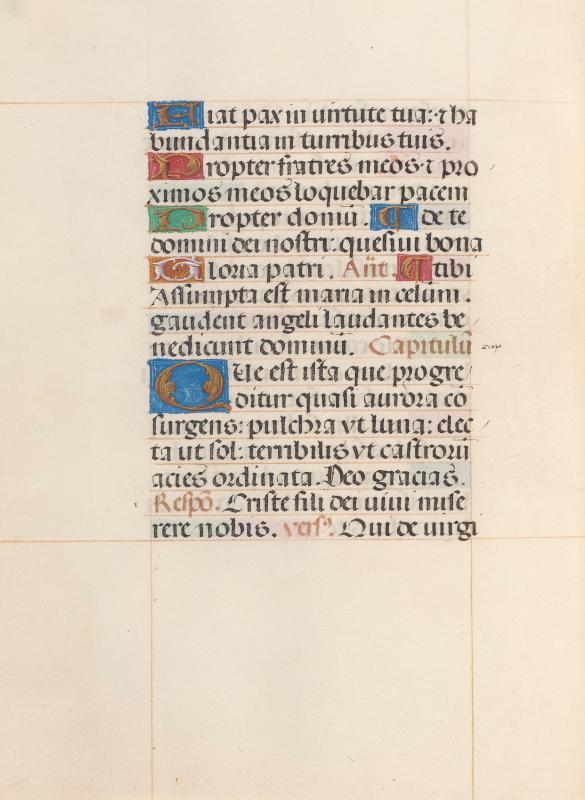 Fiat pax in uirtute tua: ⁊ ha
bundantia in turribus tuis.
Propter fratres meos ⁊ pro
ximos meos loquebar pacem
Propter domū. ¶ de te
domini dei nostri: quesiui bona
Gloria patri. Añt. ¶ tibi
Assumpta est maria in celum.
gaudent angeli laudantes be
nedicunt dominū. Capitulū
Que est ista que progre
ditur quasi aurora co
surgens: pulchra vt luna: elec
ta ut sol: terribilis vt castrorū
acies ordinata. Deo gracias.
Respō. Criste fili dei uiui mise
rere nobis. vers9. Qui de uirgi